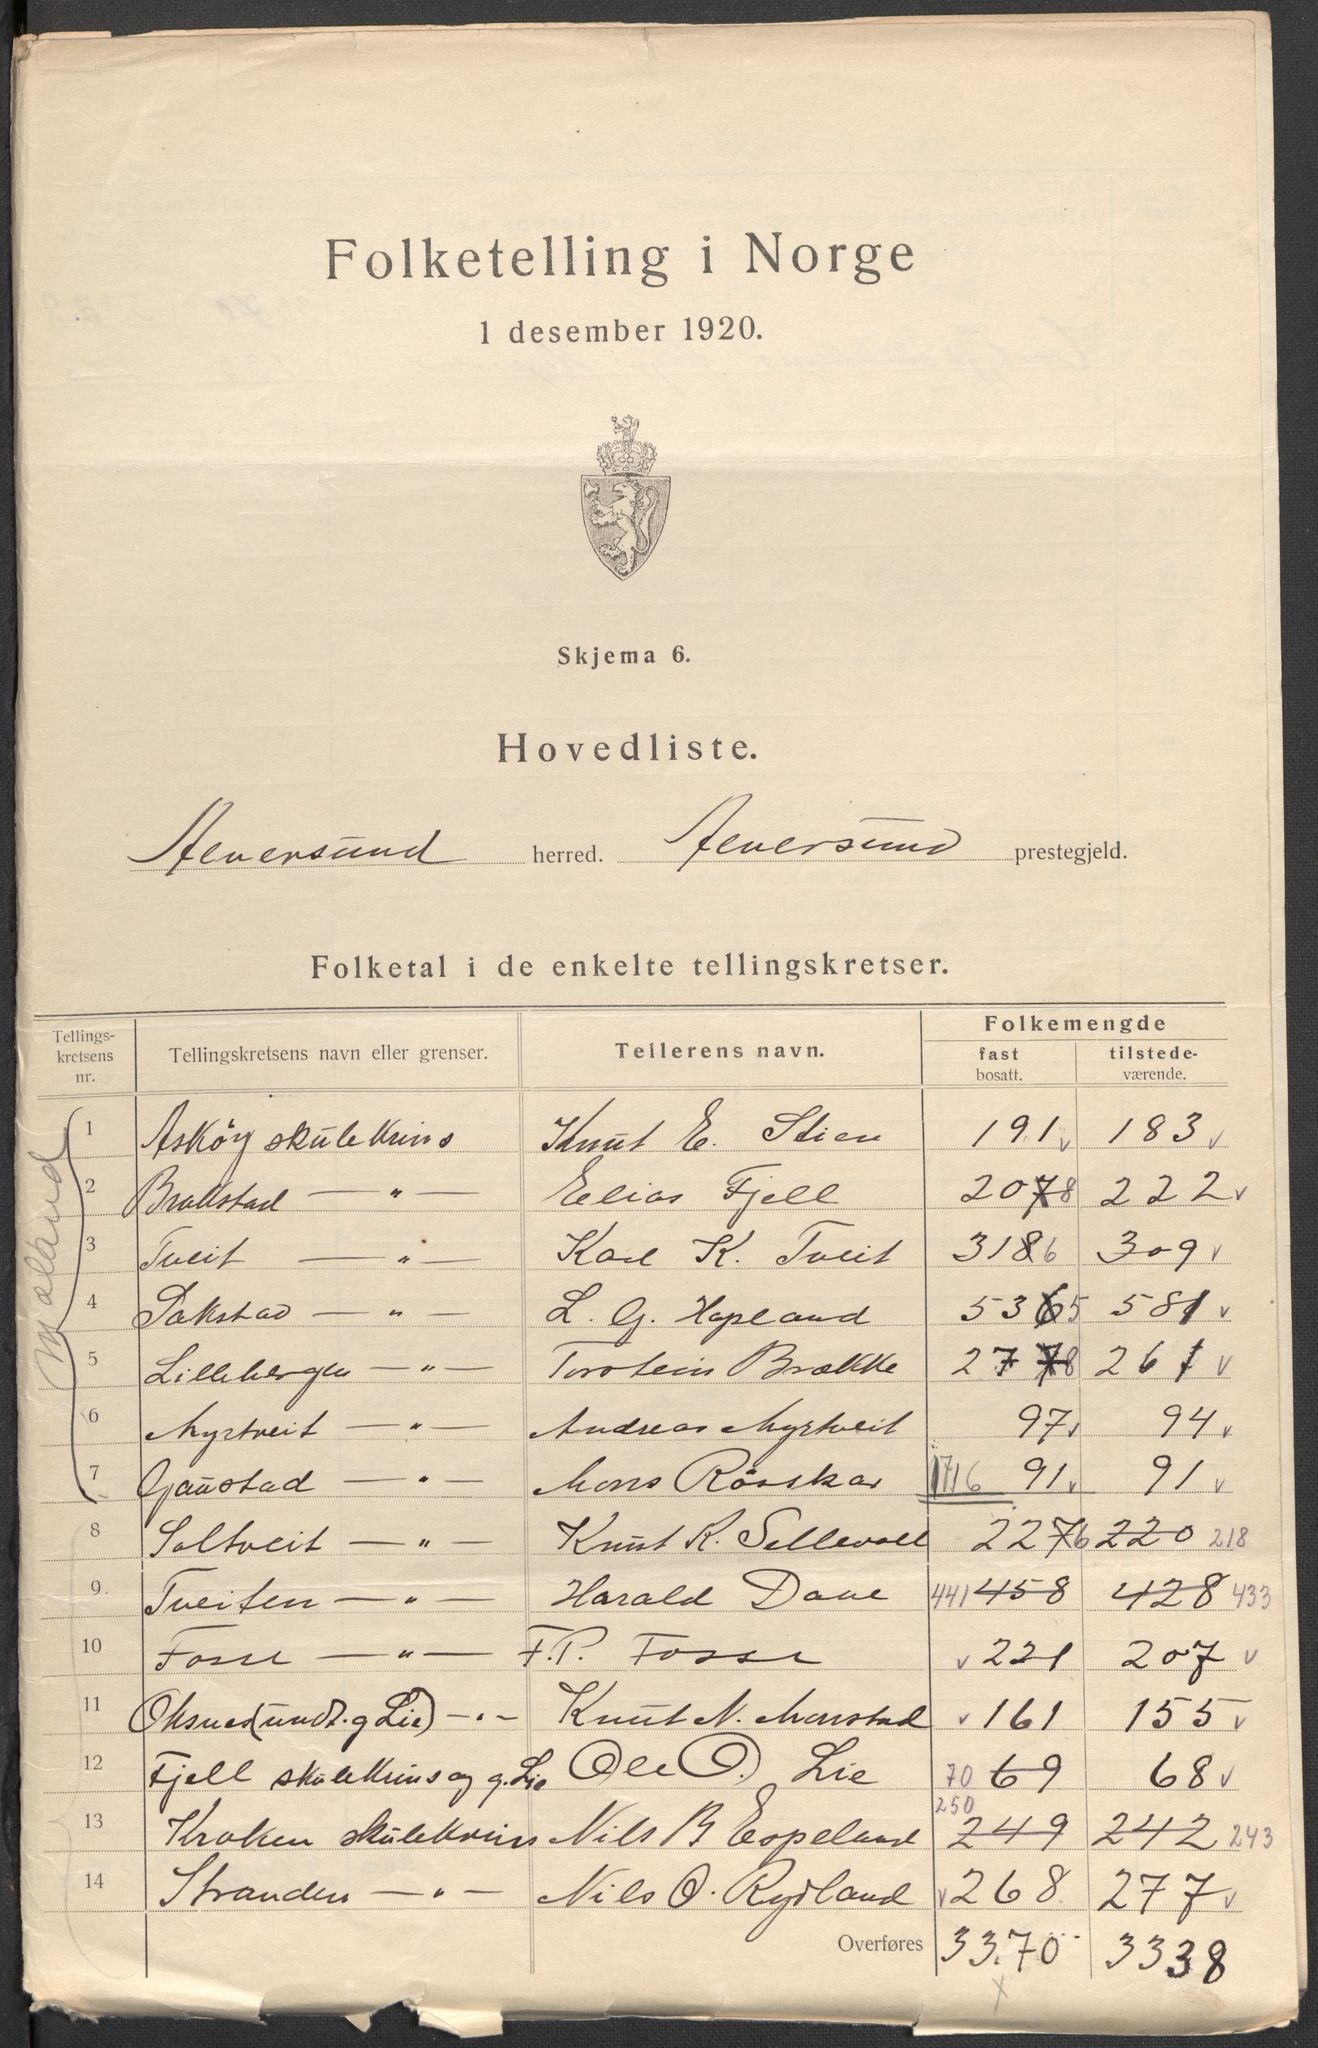 Folketelling i Norge
1 desember 1920.
Skjema 6.
Hovedliste.
Alversund herred. Alversund prestegjeld.
Folketal i de enkelte tellingskretser.
Tellings-kretsens nr. Tellingskretsens navn eller grenser. Tellerens navn. Folkemengde
fast bosatt. tilstede-værende.
Mælland
1 Asköy skulekrins Knut E. Stien 191 v 183 v
2 Brakstad — " — Elias Fjell 2078 222 v
3 Tveit — " — Karl K. Tveit 3186 309 v
4 Sakstad — " — L. G. Hopland 5365 581 v
5 Lillebergen — " — Torstein Brække 2778 261 v
6 Myrtveit — " — Andreas Myrtveit 97 v 94 v
7 Gaustad — " — Mons Rösskar 1716 91 v 91 v
8 Soltveit — " — Knut R. Sellevoll 2276 220 218
9 Tveiten — " — Harald Dave 441 458 428 433
10 Fosse — " — F. P. Fosse v 221 207 v
11 Oksnes (undt. g Lie) — " — Knut N. Monstad v 161 155 v
12 Fjell skulekrins og g. Lie Ole O. Lie 70 69 68 v
13 Kroken skulekrins Nils B Espeland 250 249 242 243
14 Stranden — " — Nils O. Rydland v 268 277 v
Overføres 3370 3338
x